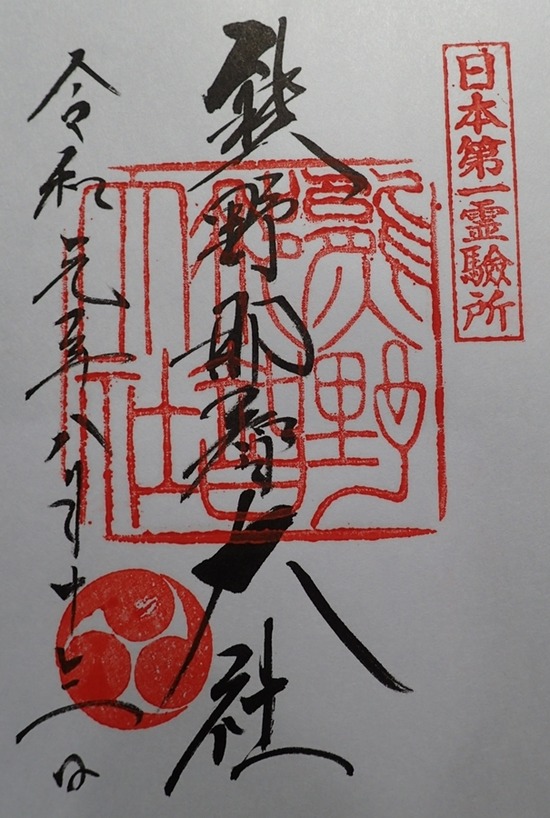 日本第一霊驗所
熊野那智大社
熊野
那智
大社
令和元年八月十三日